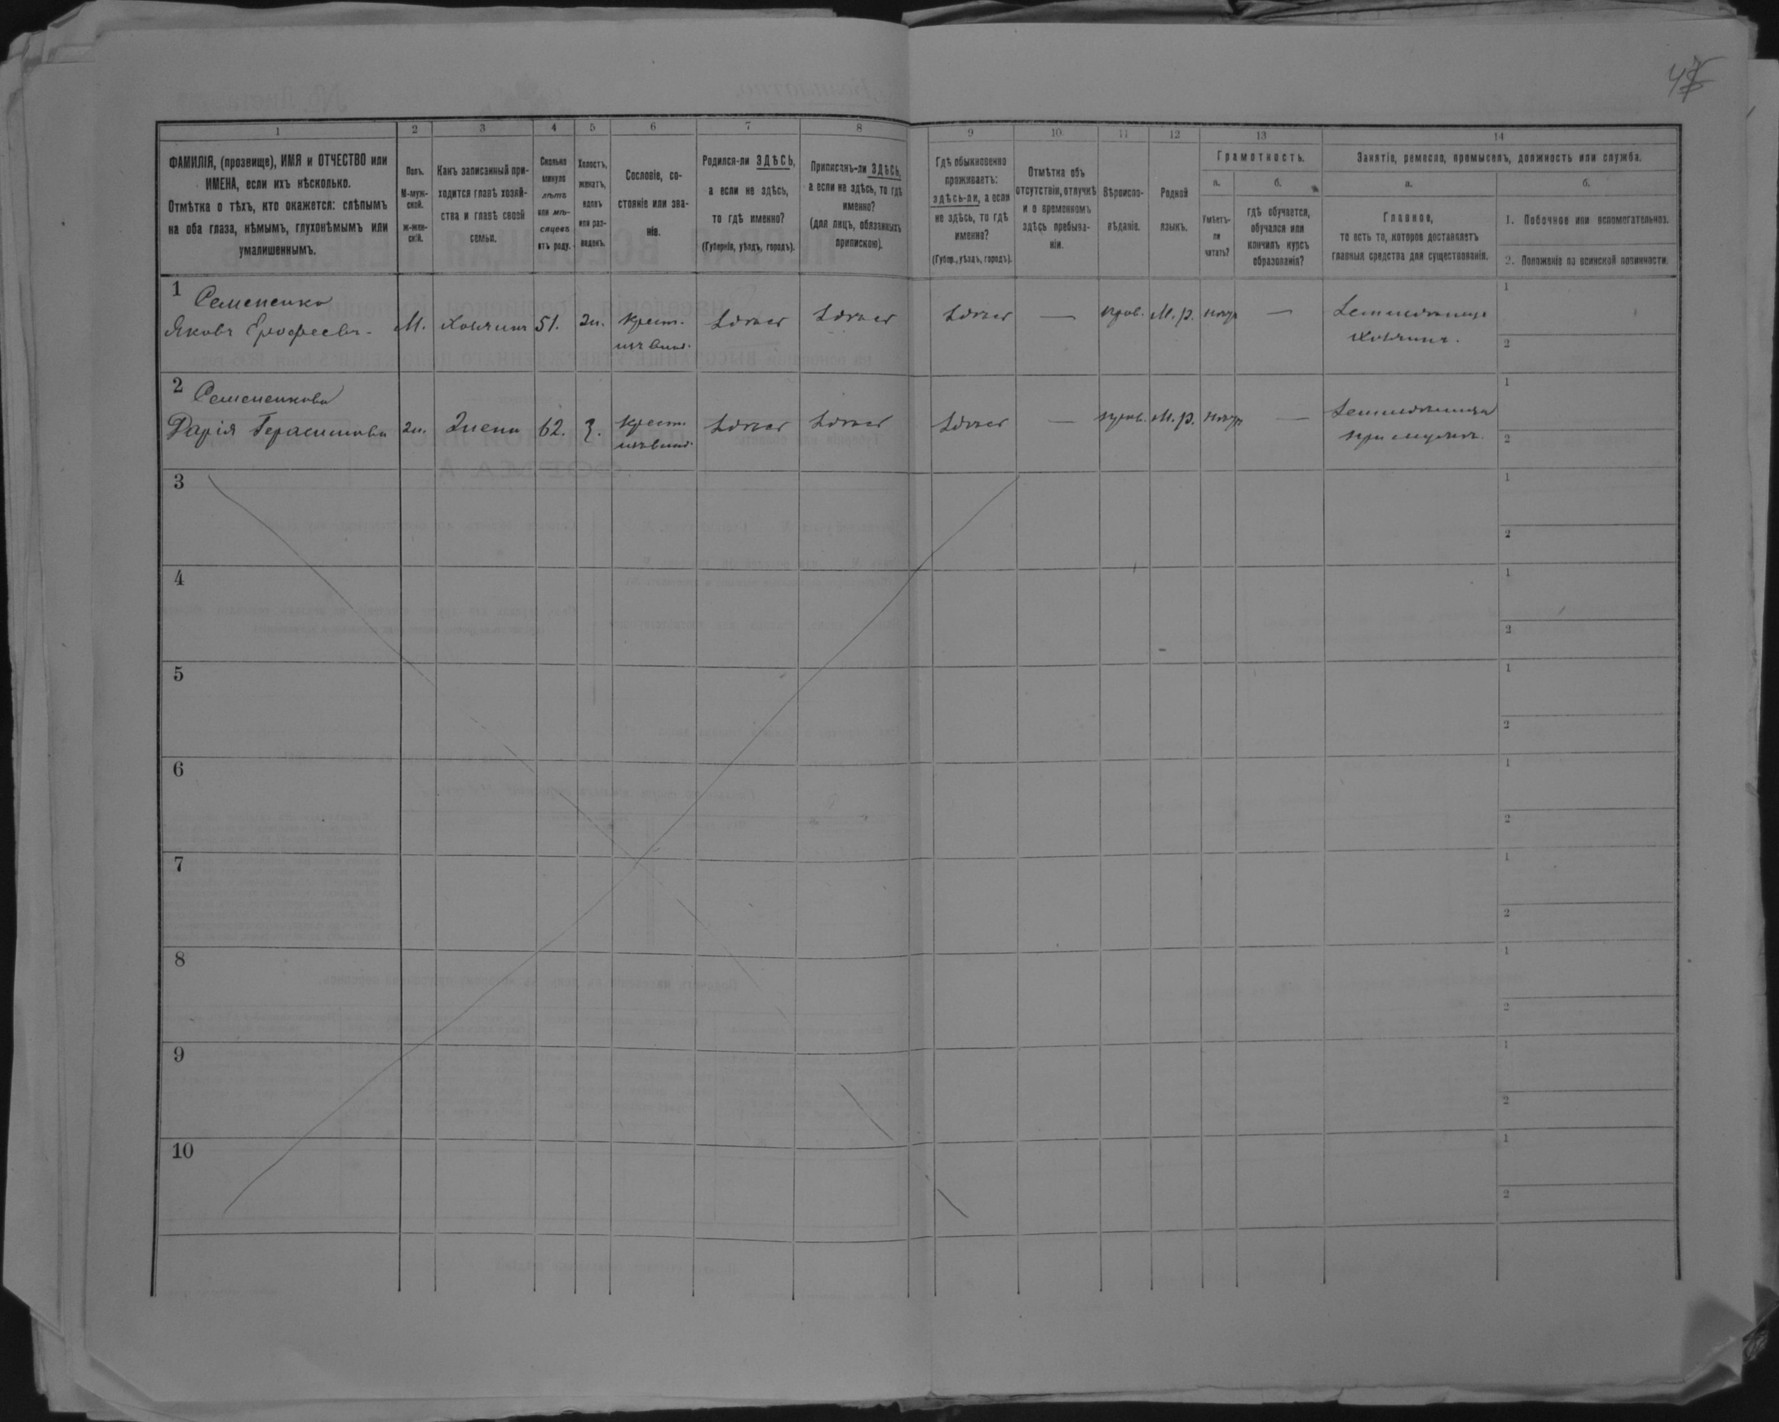 1 2 3 4 5 6 7 8 9 10 11 12 13 14
ФАМИЛІЯ, (прозвище), ИМЯ и ОТЧЕСТВО или
ИМЕНА, если ихъ нѣсколько.
Отмѣтка о тѣхъ, кто окажется: слѣпымъ
на оба глаза, нѣмымъ, глухонѣмымъ или
умалишеннымъ.
Полъ.
М-муж-
ской.
ж-жен-
скій.
Какъ записанный при-
ходится главѣ хозяй-
ства и главѣ своей
семьи.
Сколько
минуло
лѣтъ
или мѣ-
сяцевъ
отъ роду.
Холостъ,
женатъ,
вдовъ
или раз-
веденъ.
Сословіе, со-
стояніе или зва-
ніе.
Родился-ли ЗДѢСЬ,
а если не здѣсь,
то гдѣ именно?
(Губернія, уѣздъ, городъ).
Приписанъ-ли ЗДѢСЬ,
а если не здѣсь, то гдѣ
именно?
(для лицъ, обязанныхъ
припискою).
Гдѣ обыкновенно
проживаетъ:
здѣсь-ли, а если
не здѣсь, то гдѣ
именно?
(Губер., уѣздъ, городъ).
Отмѣтка объ
отсутствіи, отлучкѣ
и о временномъ
здѣсь пребыва-
ніи.
Вѣроиспо-
вѣданіе.
Родной
языкъ.
Грамотность.
а.
Умѣетъ-
ли
читать?
б.
гдѣ обучается,
обучался или
кончилъ курсъ
образованія?
Занятіе, ремесло, промыселъ, должность или служба.
а.
Главное,
то есть то, которое доставляетъ
главныя средства для существованія.
б.
1. Побочное или вспомогательное.
2. Положеніе по воинской повинности.
1 Семененко
Яковъ Ерофеевъ М. хозяинъ 51. ж. крест. здѣсь здѣсь здѣсь — прав. М.р. —
хозяинъ.
1
2
2 Семененкова
Дарія Герасимова ж. жена 62. з. крест. здѣсь здѣсь здѣсь — прав. М.р. —
1
2
3
1
2
4
1
2
5
1
2
6
1
2
7
1
2
8
1
2
9
1
2
10
1
2